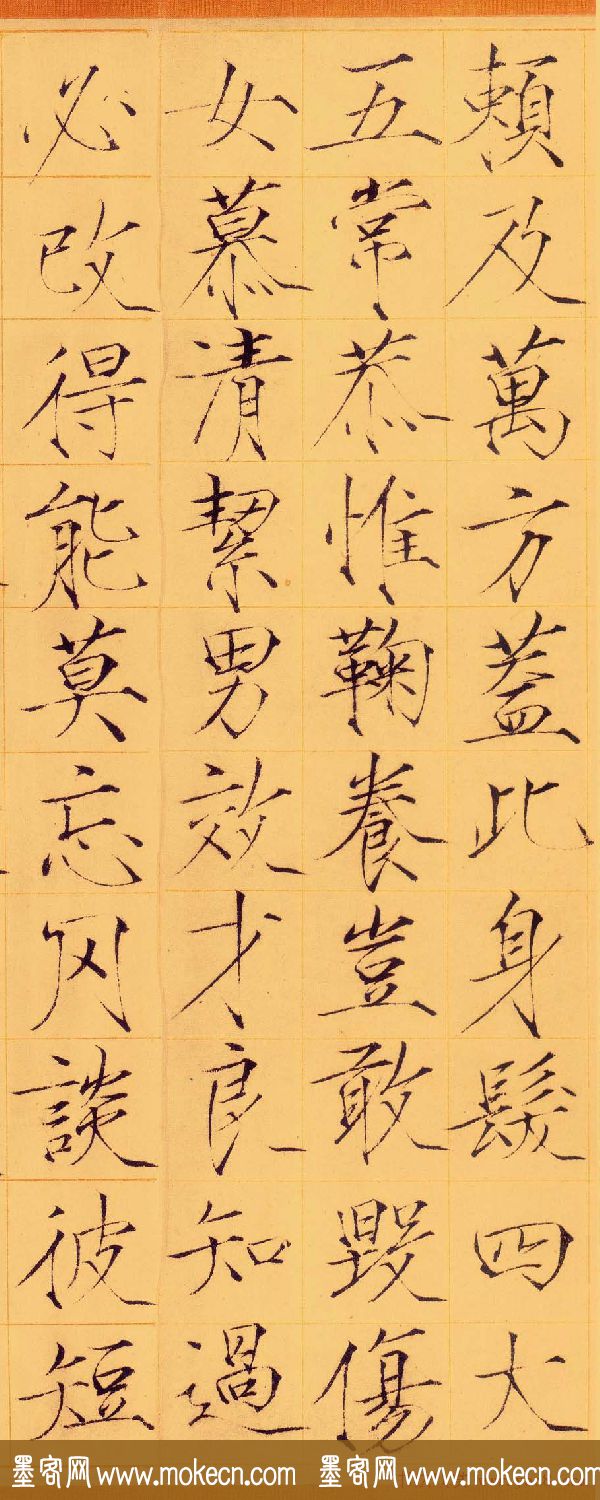 頼及萬方蓋此身髮四大
五常恭惟鞠養豈敢毀傷
女慕清絜男效才良知過
必改得能莫忘罔談彼短
墨客网 www.mokecn.com 墨客网 www.mokecn.com